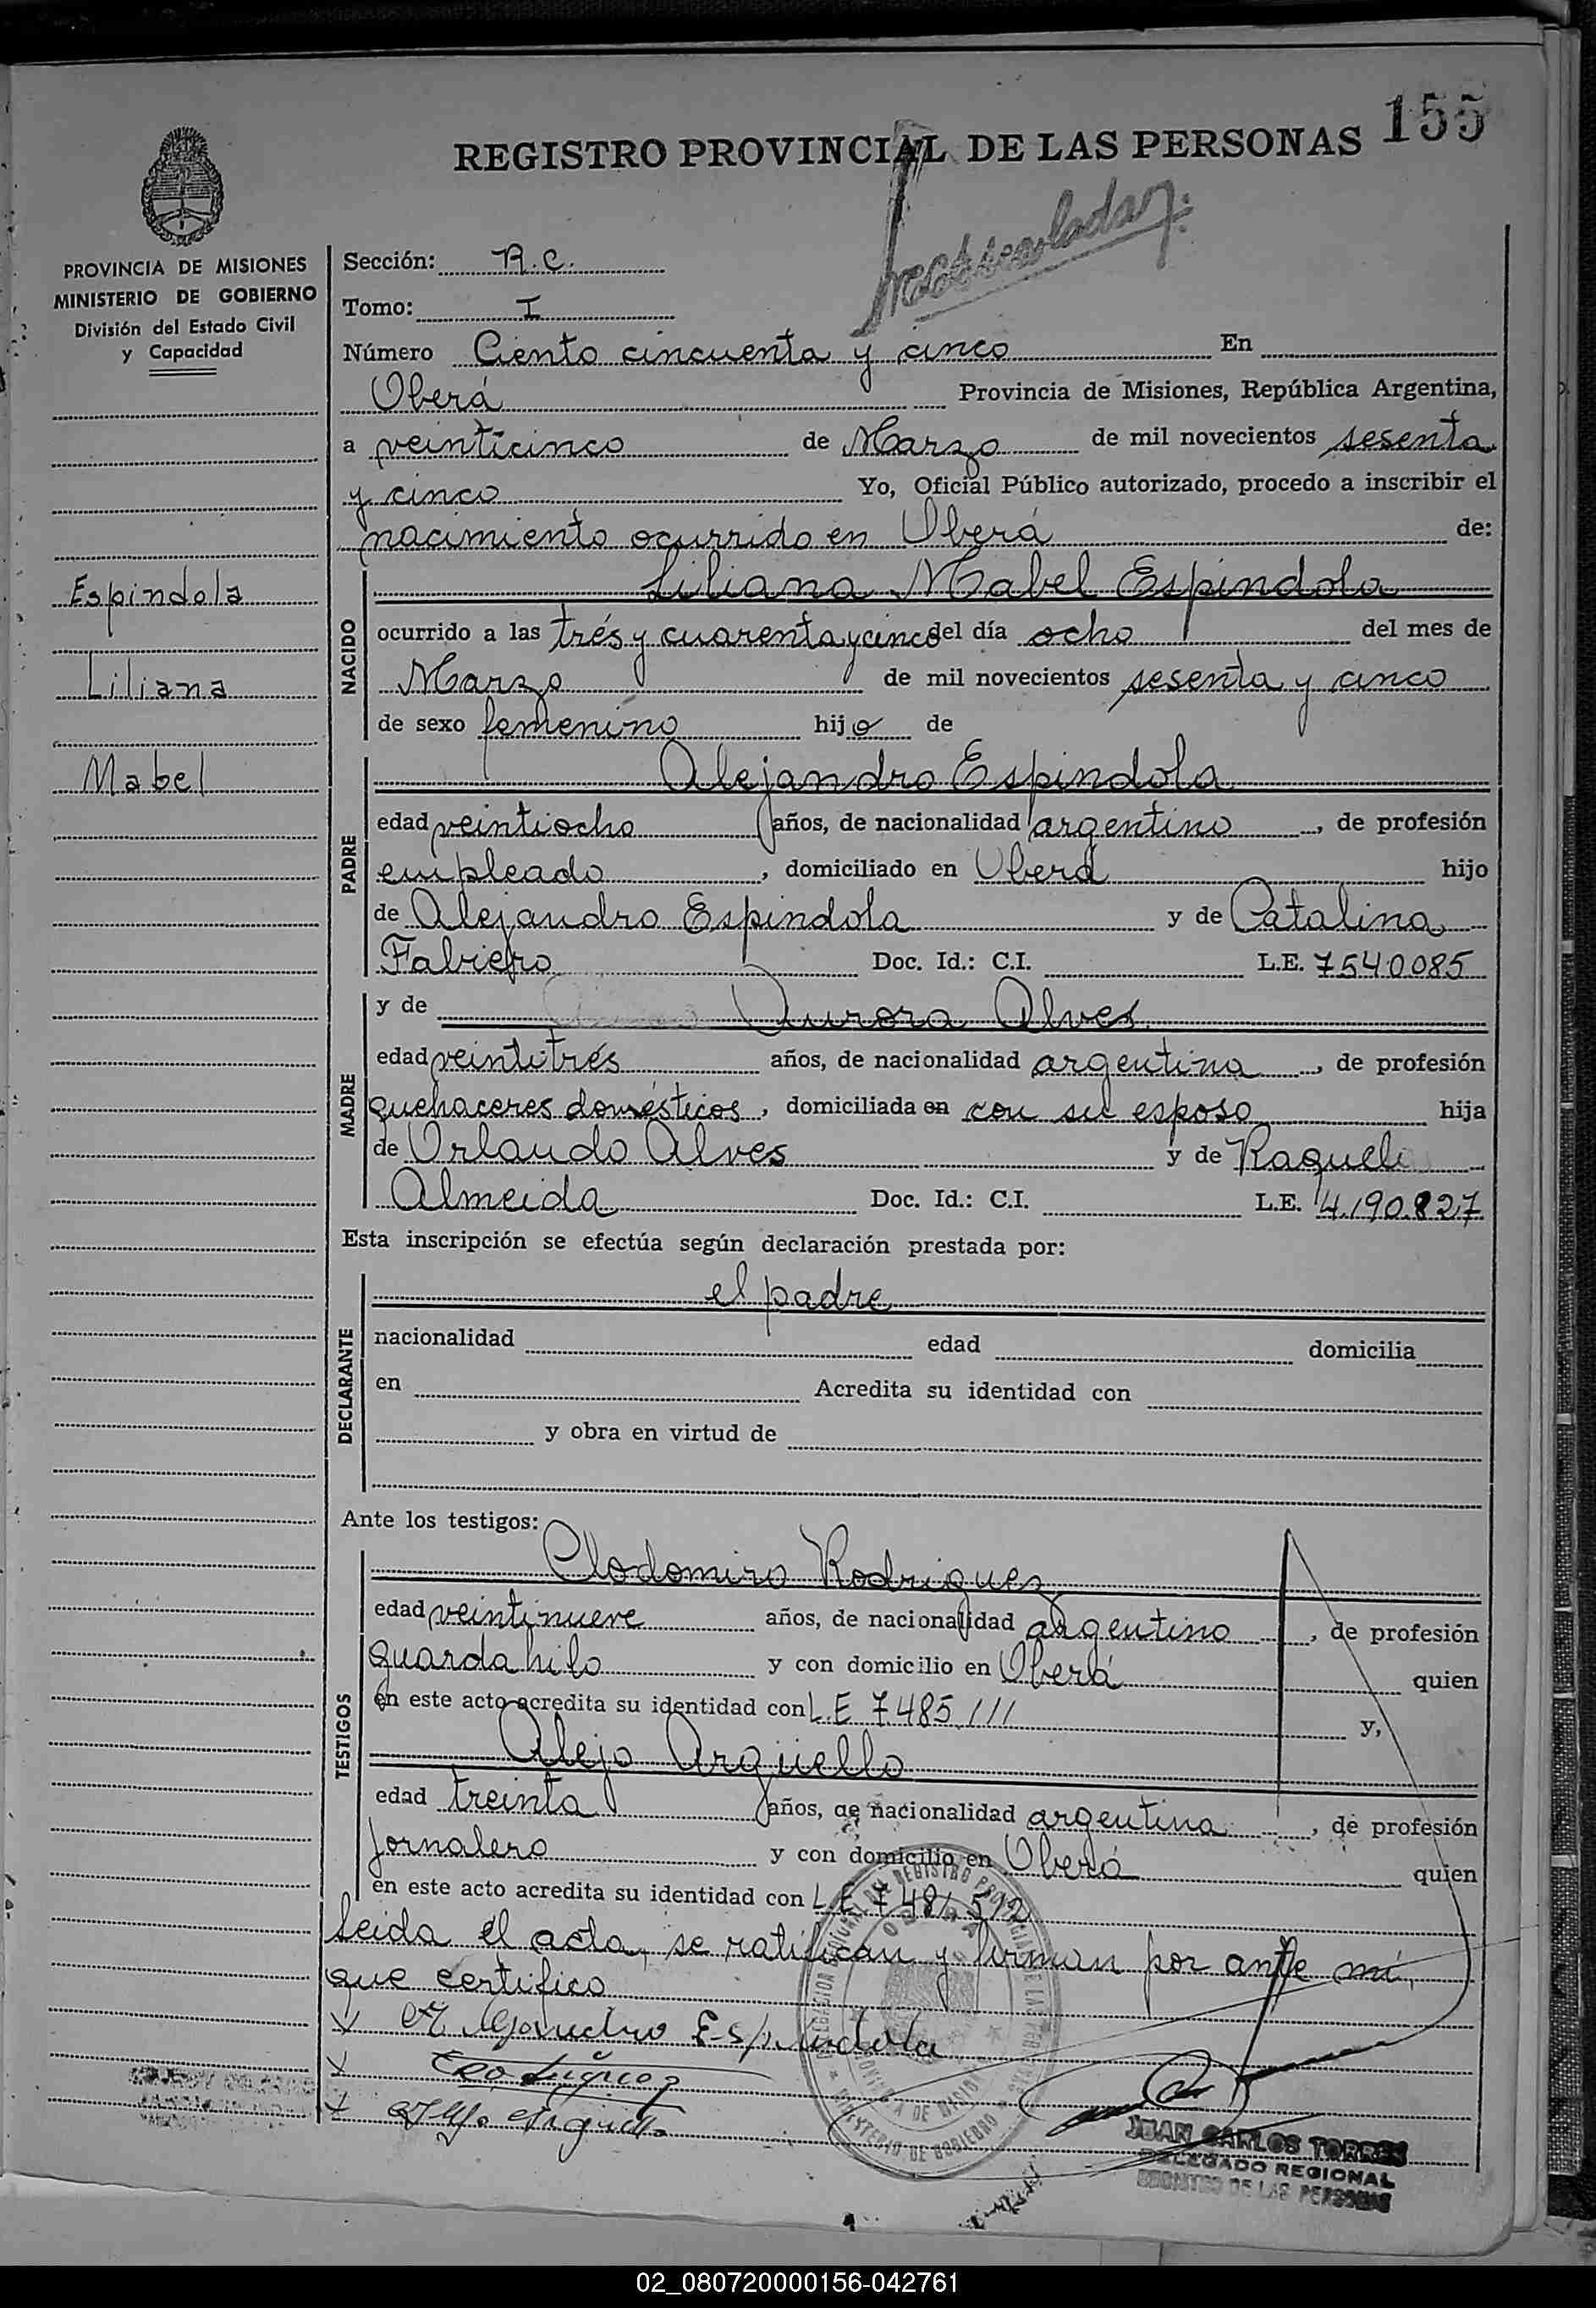 155
REGISTRO PROVINCIAL DE LAS PERSONAS
PROVINCIA DE MISIONES
MINISTERIO DE GOBIERNO
División del Estado Civil
y Capacidad
Espindola
Liliana
Mabel
Sección: R.C.
Tomo: I
Número Ciento cincuenta y cinco En
Oberá Provincia de Misiones, República Argentina,
a veinticinco de Marzo de mil novecientos sesenta
y cinco Yo, Oficial Público autorizado, procedo a inscribir el
nacimiento ocurrido en Oberá de:
NACIDO
Liliana Mabel Espindola
ocurrido a las trés y cuarenta y cinco del día ocho del mes de
Marzo de mil novecientos sesenta y cinco
de sexo femenino hijo de
PADRE
Alejandro Espindola
edad veintiocho años, de nacionalidad argentino, de profesión
empleado, domiciliado en Oberá hijo
de Alejandro Espindola y de Catalina
Doc. Id.: C.I. L.E. 7540085
MADRE
y de Aurora Alves
edad veintitrés años, de nacionalidad argentina, de profesión
quehaceres domésticos, domiciliada en con su esposo hija
de Orlando Alves y de Raquel
Almeida Doc. Id.: C.I. L.E. 4.190.827
Esta inscripción se efectúa según declaración prestada por:
DECLARANTE
el padre
nacionalidad edad domicilia
en Acredita su identidad con
y obra en virtud de
Ante los testigos:
TESTIGOS
Clodomiro Rodriguez
edad veintinueve años, de nacionalidad argentino, de profesión
guarda hilo y con domicilio en Oberá quien
en este acto acredita su identidad con L.E 7.485.111 y,
Alejo Argüello
edad treinta años, de nacionalidad argentina, de profesión
Jornalero y con domicilio en Oberá quien
en este acto acredita su identidad con L.E 7 481 512
Leida el acta, se ratifican y firman por ante mí,
que certifico
Alejandro Espindola
JUAN CARLOS TORRES
DELEGADO REGIONAL
REGISTRO DE LAS PERSONAS
02_080720000156-042761